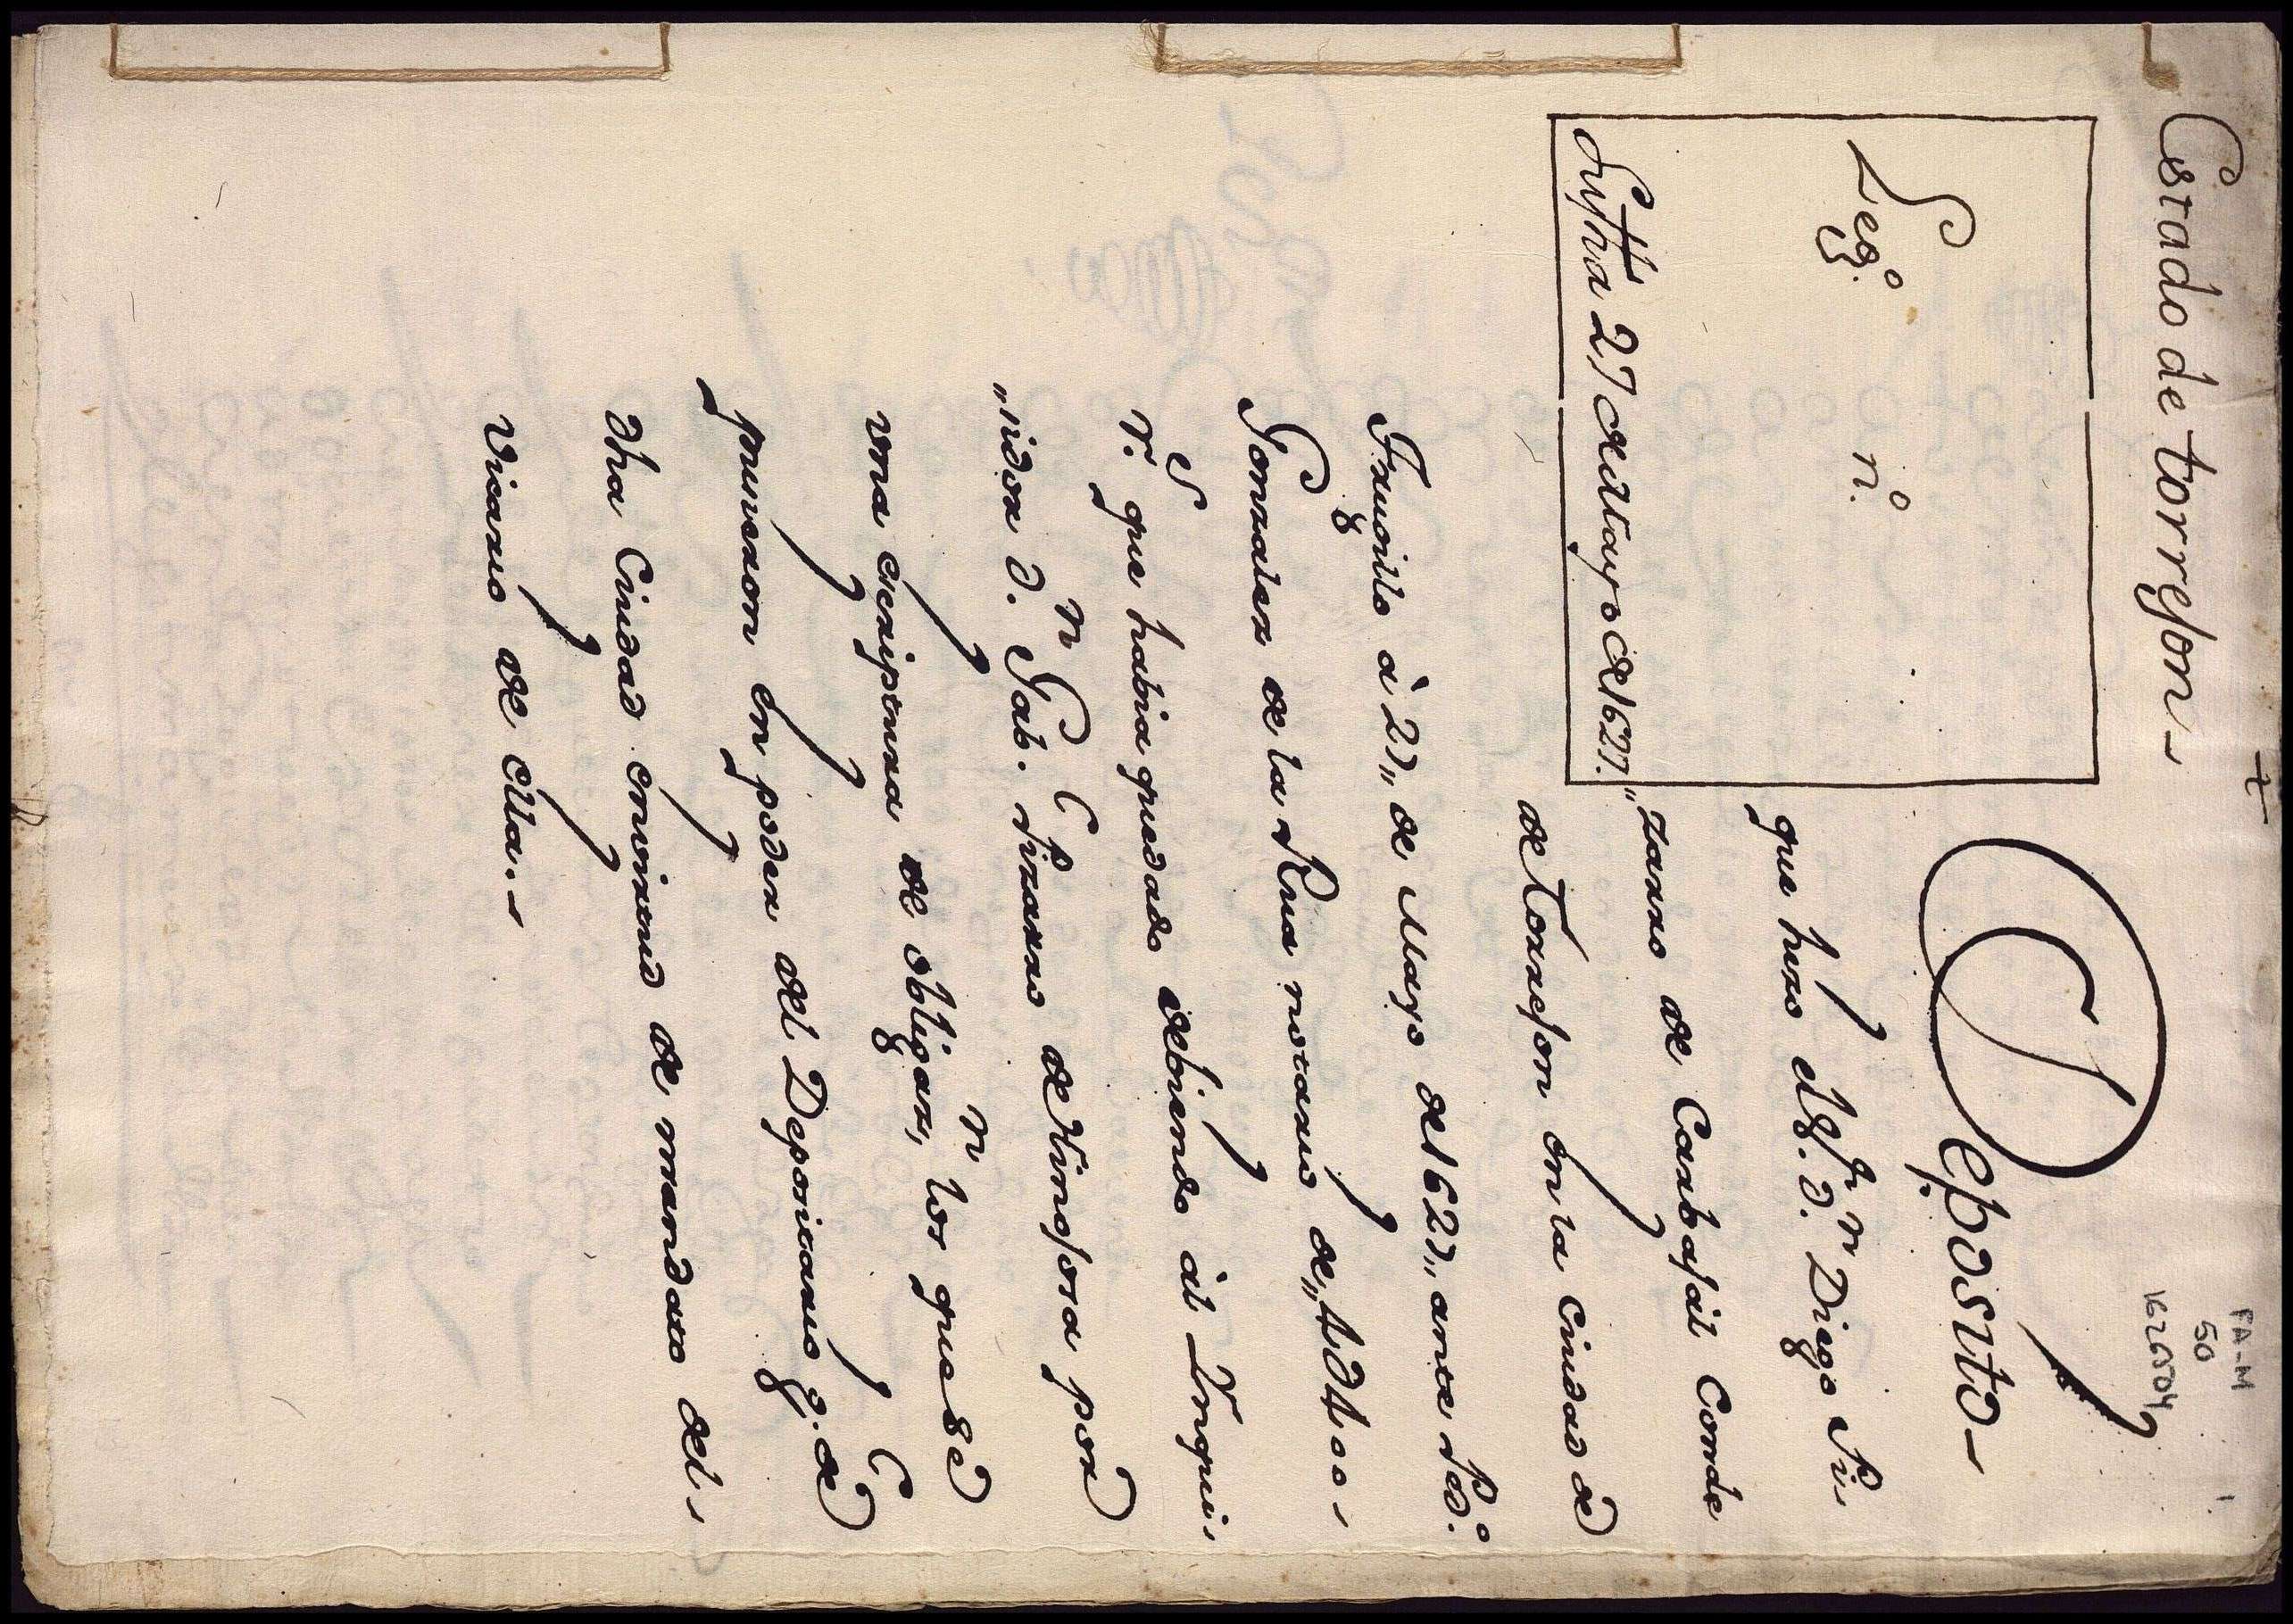 Estado de torrejon
FA-M
50
1626504
1
Leg.º n.º
Su fha 27 de Mayo de 1627.
Deposito
que hizo el S.ʳ D.ⁿ Diego Pi-
"zarro de Carbajál Conde
de Torrejon en la Ciudad de
Truxillo à 27,, de Mayo de 1627,, ante P.º
Gonzalez de la Rua notario de,,
r.ˢ que habia quedado debiendo àl Ynqui-
"sidor D.ⁿ Gab.ˡ Pizarro de Hinojosa por
una escriptura de obligaz,,ⁿ los que se
pusieron en poder del Depositario g.ˡ de
dha Ciudad en virtud de mandato del
Vicario de ella.